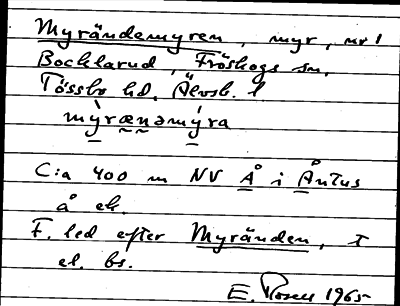 Myrändemyren, myr, nr 1
Bocklarud, Fröskogs sn,
Tössbo hd, Älvsb. l
mỳrænəmýra
C:a 400 m NV Å i Åntus
å ek.
F. led efter Myränden, t
el. bs.
E. Rosell 1965